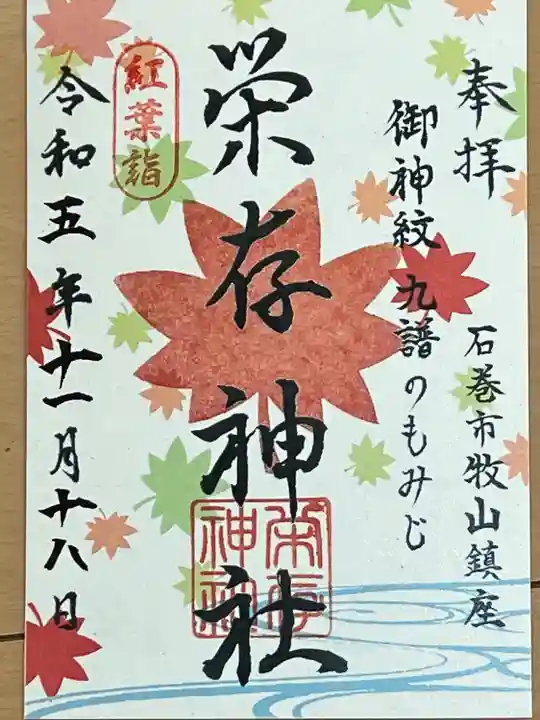 奉拝
石巻市牧山鎮座
御神紋 九譜のもみじ
栄存神社
栄存神社
紅葉詣
令和五年十一月十八日